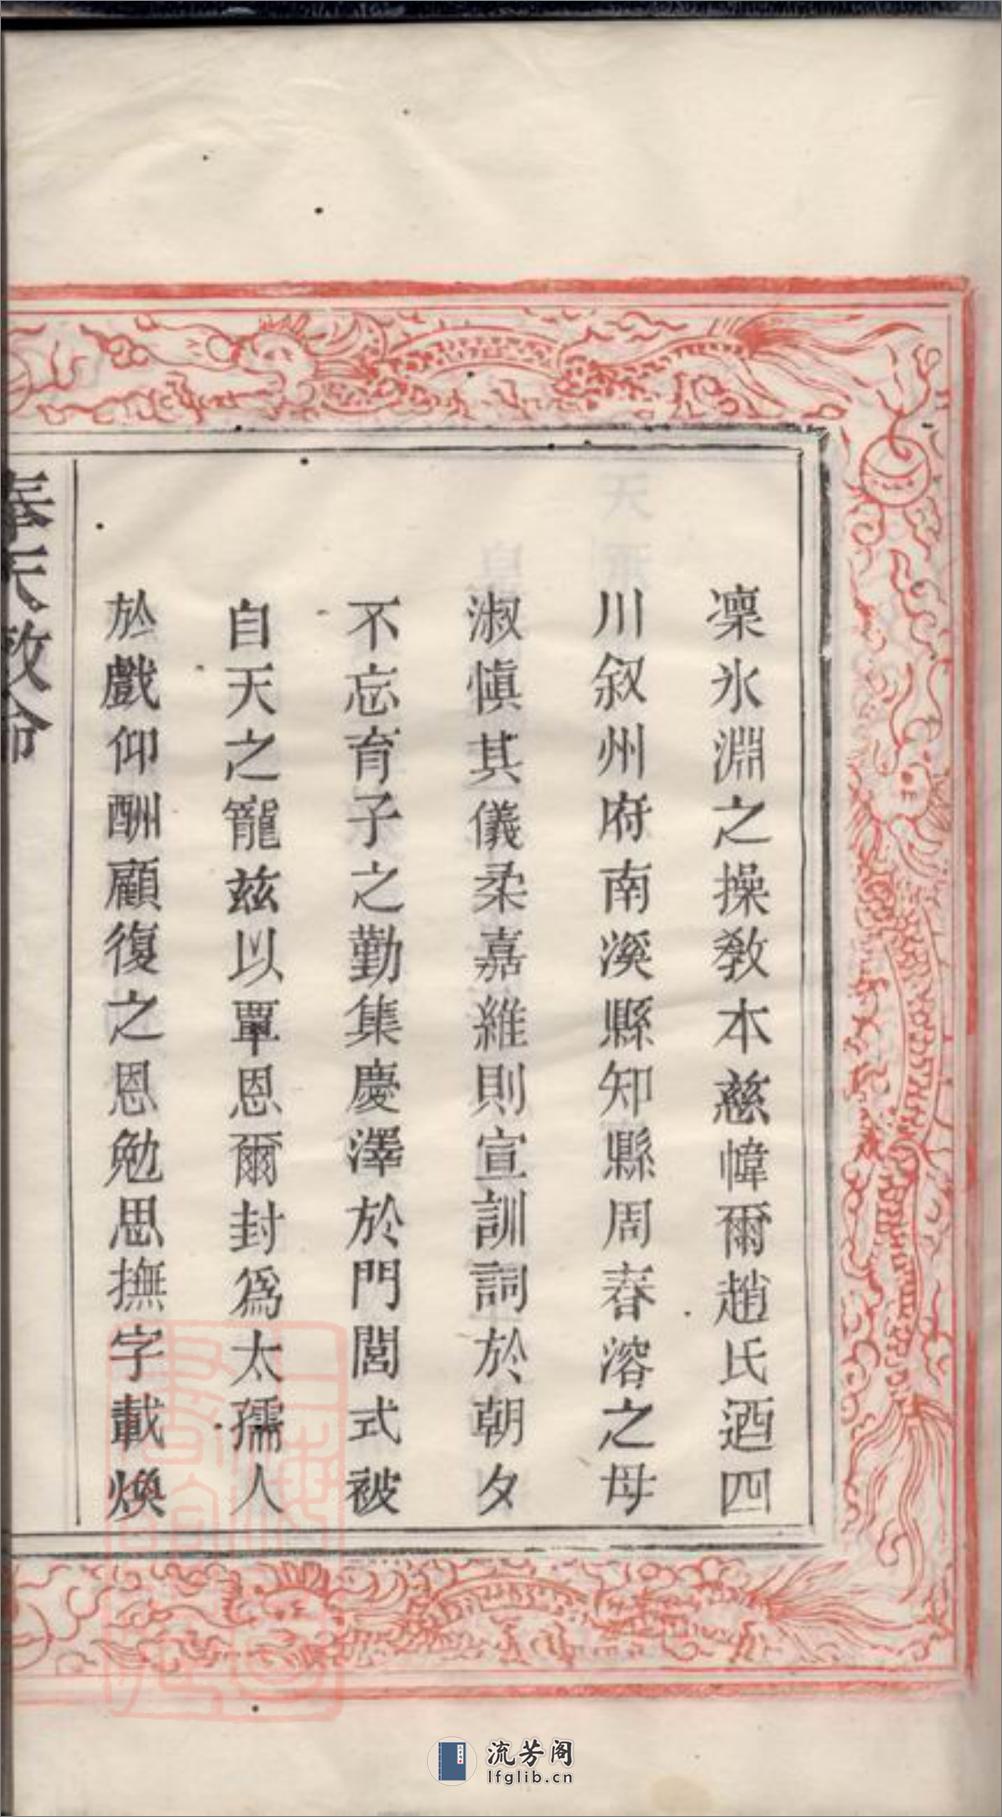 凜氷淵之操敎本慈幃爾趙氏迺四
川叙州府南溪縣知縣周春溶之母
淑愼其儀柔嘉維則宣訓詞於朝夕
不忘育子之勤集慶澤於門閭式被
自天之寵兹以覃恩爾封爲太孺人
於戲仰酬顧復之恩勉思撫字載煥
奉天敕命
流芳阁
lfglib.cn